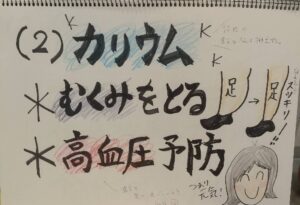 (2) カリウム
K
K
K
＊むくみをとる
足 → 足
スッキリ!!
＊高血圧予防